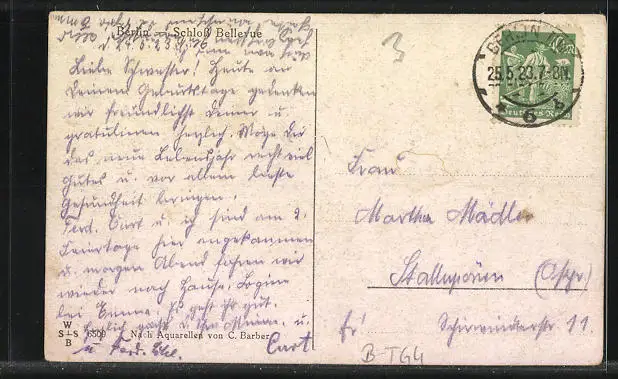 Berlin — Schloß Bellevue
d. 24.5.23.
Liebe Schwester! Heute an
Deinem Geburtstage gedenken
wir freundlichst Deiner u.
gratulieren herzlich. Möge Dir
das neue Lebensjahr recht viel
Gutes u. vor allem beste
Gesundheit bringen.
Ferd. Curt u. ich sind am 2.
Feiertage hier angekommen
u. morgen Abend fahren wir
wieder nach Hause.
bei Emma. Es geht ihr gut.
u.
Curt
u Ferd.
W
S+S 6509
B
Nach Aquarellen von C. Barber
3
BERLIN
25.5.23.7-8N.
* 6 b
Deutsches Reich
Frau
Martha Mädler
Stallupönen (Ostpr.)
Schirwinderstr 11.
B-TG4